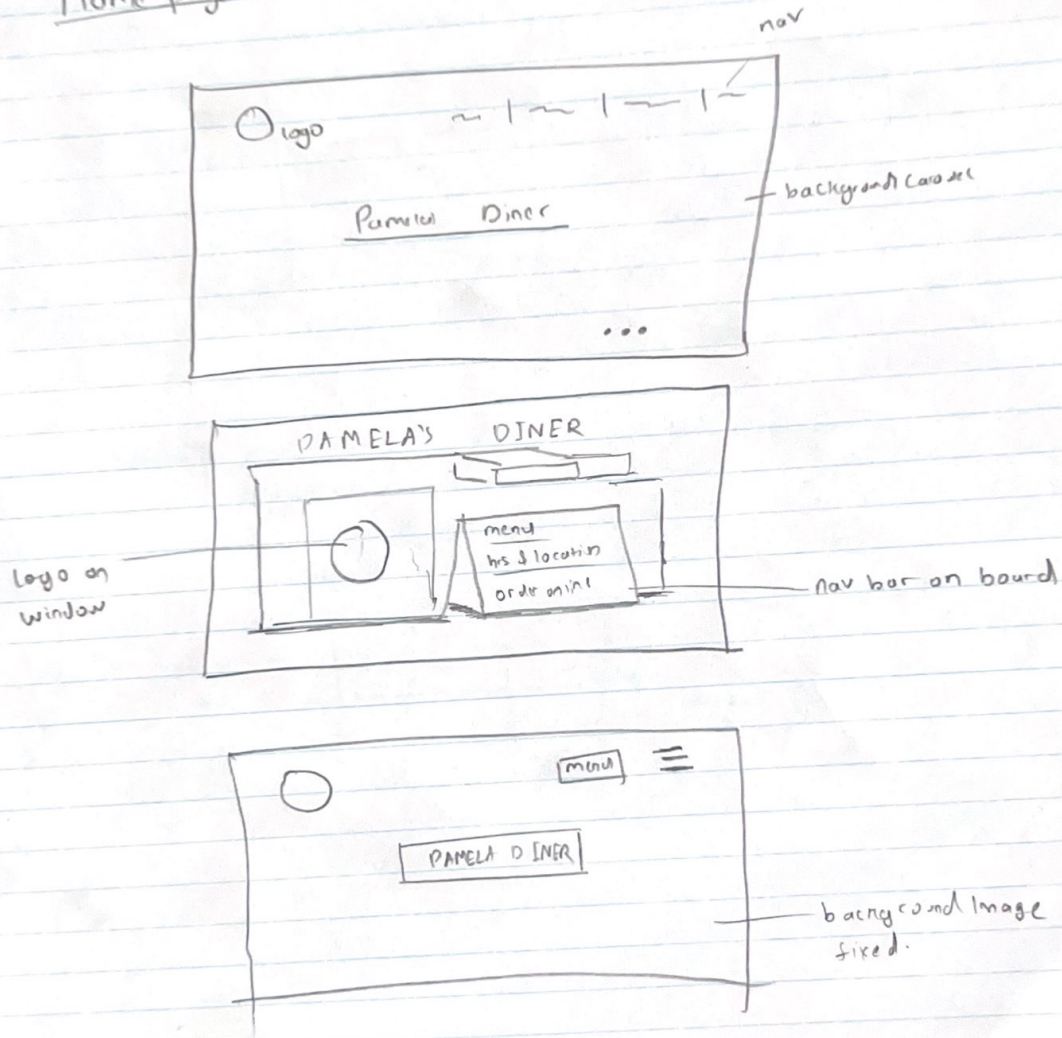 Home pag
nav
logo
background Carosel
Pamela Diner
PAMELA'S DINER
menu
hrs & location
order online
logo on
window
nav bar on board
menu
PAMELA DINER
background Image
fixed.